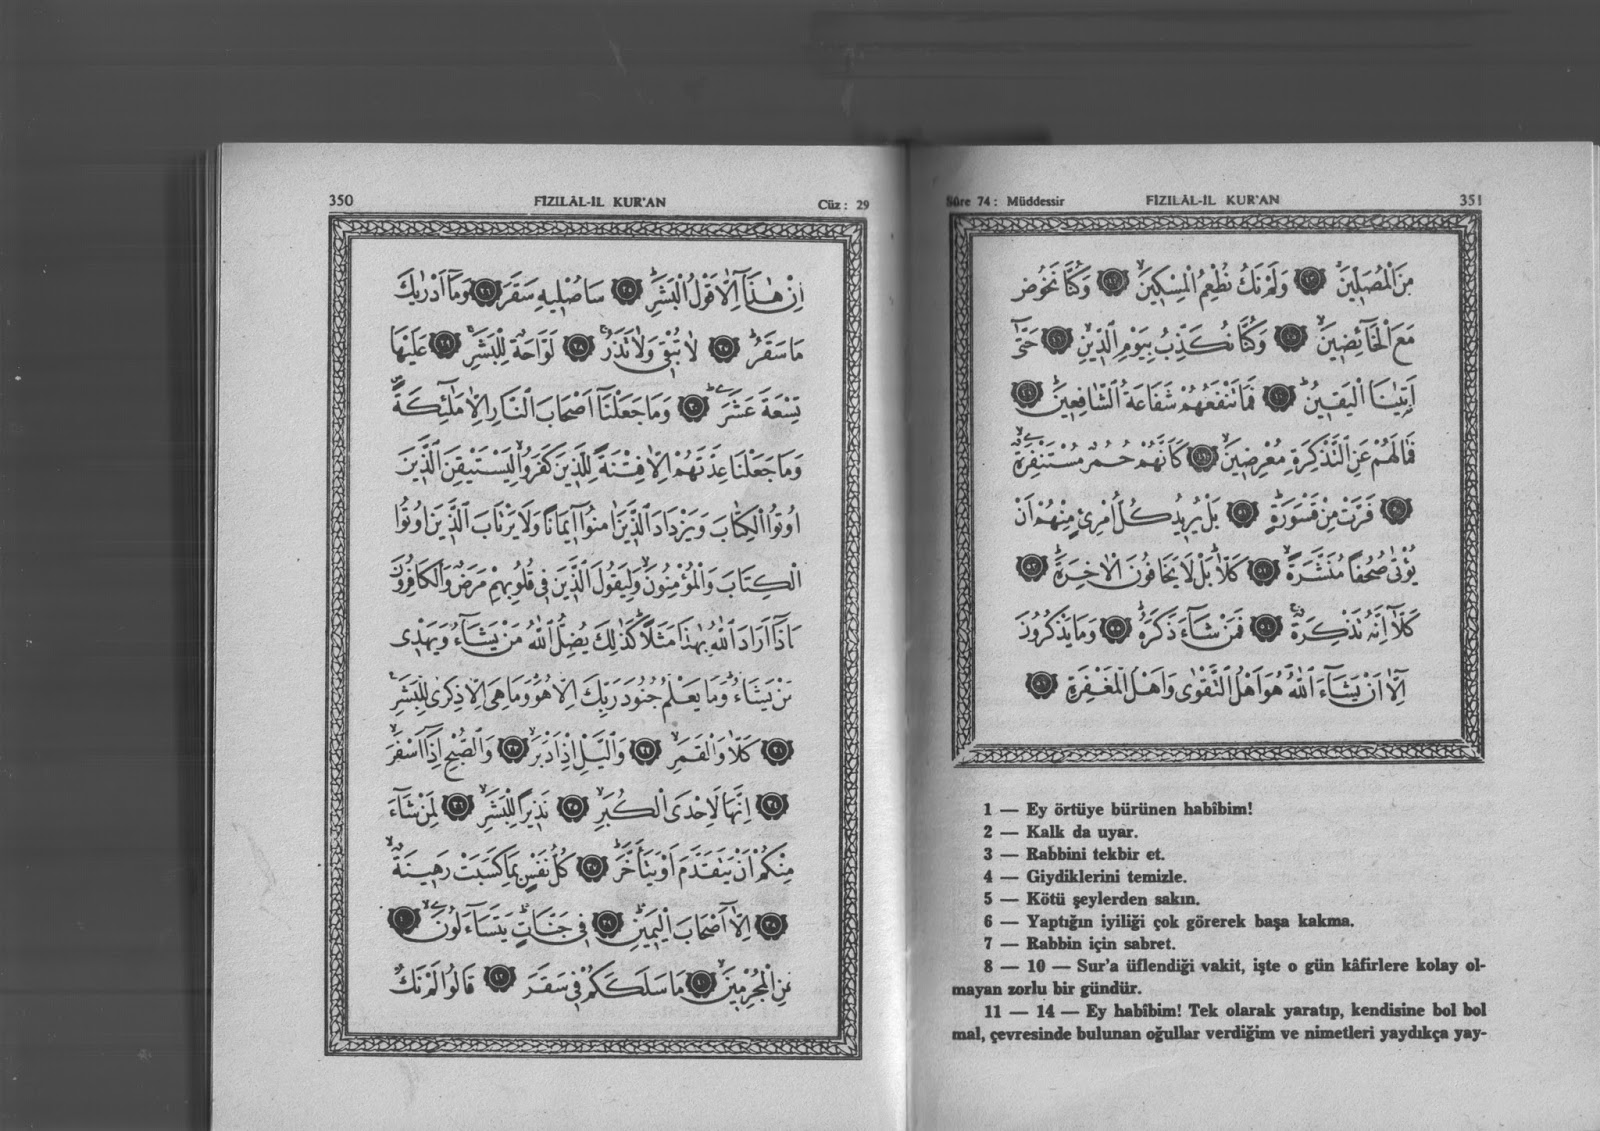 350 FÎZILÂL-İL KUR'AN Cüz: 29
اِنْ هٰذَٓا اِلَّا قَوْلُ الْبَشَرِۜ ﴿٢٥﴾ سَاُصْل۪يهِ سَقَرَ ﴿٢٦﴾ وَمَٓا اَدْرٰيكَ
مَا سَقَرُۜ ﴿٢٧﴾ لَا تُبْق۪ي وَلَا تَذَرُۚ ﴿٢٨﴾ لَوَّاحَةٌ لِلْبَشَرِۚ ﴿٢٩﴾ عَلَيْهَا
تِسْعَةَ عَشَرَۜ ﴿٣٠﴾ وَمَا جَعَلْنَٓا اَصْحَابَ النَّارِ اِلَّا مَلٰٓئِكَةًۖ
وَمَا جَعَلْنَا عِدَّتَهُمْ اِلَّا فِتْنَةً لِلَّذ۪ينَ كَفَرُواۙ لِيَسْتَيْقِنَ الَّذ۪ينَ
اُو۫تُوا الْكِتَابَ وَيَزْدَادَ الَّذ۪ينَ اٰمَنُٓوا ا۪يمَانًا وَلَا يَرْتَابَ الَّذ۪ينَ اُو۫تُوا
الْكِتَابَ وَالْمُؤْمِنُونَۙ وَلِيَقُولَ الَّذ۪ينَ ف۪ي قُلُوبِهِمْ مَرَضٌ وَالْكَافِرُونَ
مَاذَٓا اَرَادَ اللّٰهُ بِهٰذَا مَثَلًاۜ كَذٰلِكَ يُضِلُّ اللّٰهُ مَنْ يَشَٓاءُ وَيَهْد۪ي
مَنْ يَشَٓاءُۜ وَمَا يَعْلَمُ جُنُودَ رَبِّكَ اِلَّا هُوَۜ وَمَا هِيَ اِلَّا ذِكْرٰى لِلْبَشَرِ۟
﴿٣١﴾ كَلَّا وَالْقَمَرِۙ ﴿٣٢﴾ وَالَّيْلِ اِذْ اَدْبَرَۙ ﴿٣٣﴾ وَالصُّبْحِ اِذَٓا اَسْفَرَۙ
﴿٣٤﴾ اِنَّهَا لَاِحْدَى الْكُبَرِۙ ﴿٣٥﴾ نَذ۪يرًا لِلْبَشَرِۙ ﴿٣٦﴾ لِمَنْ شَٓاءَ
مِنْكُمْ اَنْ يَتَقَدَّمَ اَوْ يَتَاَخَّرَۜ ﴿٣٧﴾ كُلُّ نَفْسٍ بِمَا كَسَبَتْ رَه۪ينَةٌۙ
﴿٣٨﴾ اِلَّٓا اَصْحَابَ الْيَم۪ينِۜ ﴿٣٩﴾ ف۪ي جَنَّاتٍۜ يَتَسَٓاءَلُونَۙ ﴿٤٠﴾
عَنِ الْمُجْرِم۪ينَۙ ﴿٤١﴾ مَا سَلَكَكُمْ ف۪ي سَقَرَ ﴿٤٢﴾ قَالُوا لَمْ نَكُ
Sûre 74: Müddessir FÎZILÂL-İL KUR'AN 351
مِنَ الْمُصَلّ۪ينَۙ ﴿٤٣﴾ وَلَمْ نَكُ نُطْعِمُ الْمِسْك۪ينَۙ ﴿٤٤﴾ وَكُنَّا نَخُوضُ
مَعَ الْخَٓائِض۪ينَۙ ﴿٤٥﴾ وَكُنَّا نُكَذِّبُ بِيَوْمِ الدّ۪ينِۙ ﴿٤٦﴾ حَتّٰٓى
اَتٰينَا الْيَق۪ينُۜ ﴿٤٧﴾ فَمَا تَنْفَعُهُمْ شَفَاعَةُ الشَّافِع۪ينَۜ ﴿٤٨﴾
فَمَا لَهُمْ عَنِ التَّذْكِرَةِ مُعْرِض۪ينَۙ ﴿٤٩﴾ كَاَنَّهُمْ حُمُرٌ مُسْتَنْفِرَةٌۙ
﴿٥٠﴾ فَرَّتْ مِنْ قَسْوَرَةٍۜ ﴿٥١﴾ بَلْ يُر۪يدُ كُلُّ امْرِئٍ مِنْهُمْ اَنْ
يُؤْتٰى صُحُفًا مُنَشَّرَةًۙ ﴿٥٢﴾ كَلَّاۜ بَلْ لَا يَخَافُونَ الْاٰخِرَةَۜ ﴿٥٣﴾
كَلَّٓا اِنَّهُ تَذْكِرَةٌۚ ﴿٥٤﴾ فَمَنْ شَٓاءَ ذَكَرَهُۜ ﴿٥٥﴾ وَمَا يَذْكُرُونَ
اِلَّٓا اَنْ يَشَٓاءَ اللّٰهُ هُوَ اَهْلُ التَّقْوٰى وَاَهْلُ الْمَغْفِرَةِ ﴿٥٦﴾
1 — Ey örtüye bürünen habîbim!
2 — Kalk da uyar.
3 — Rabbini tekbir et.
4 — Giydiklerini temizle.
5 — Kötü şeylerden sakın.
6 — Yaptığın iyiliği çok görerek başa kakma.
7 — Rabbin için sabret.
8 — 10 — Sur'a üflendiği vakit, işte o gün kâfirlere kolay ol-
mayan zorlu bir gündür.
11 — 14 — Ey habîbim! Tek olarak yaratıp, kendisine bol bol
mal, çevresinde bulunan oğullar verdiğim ve nimetleri yaydıkça yay-